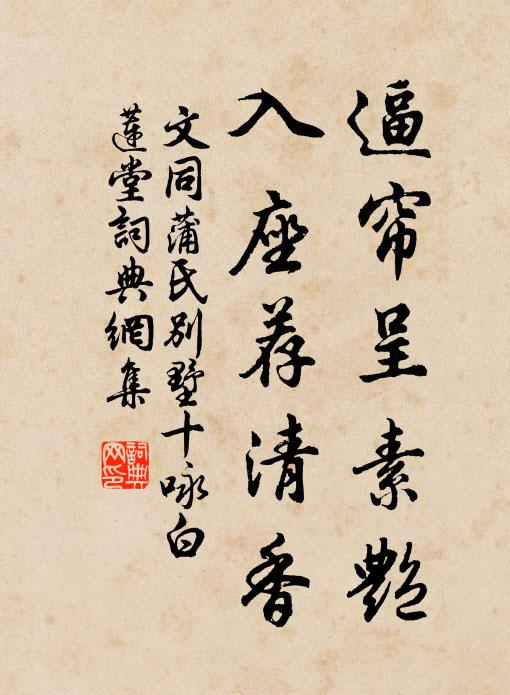 逼帘呈素艳
入座荐清香
文同蒲氏别墅十咏白
莲堂词典網集
詞典网印